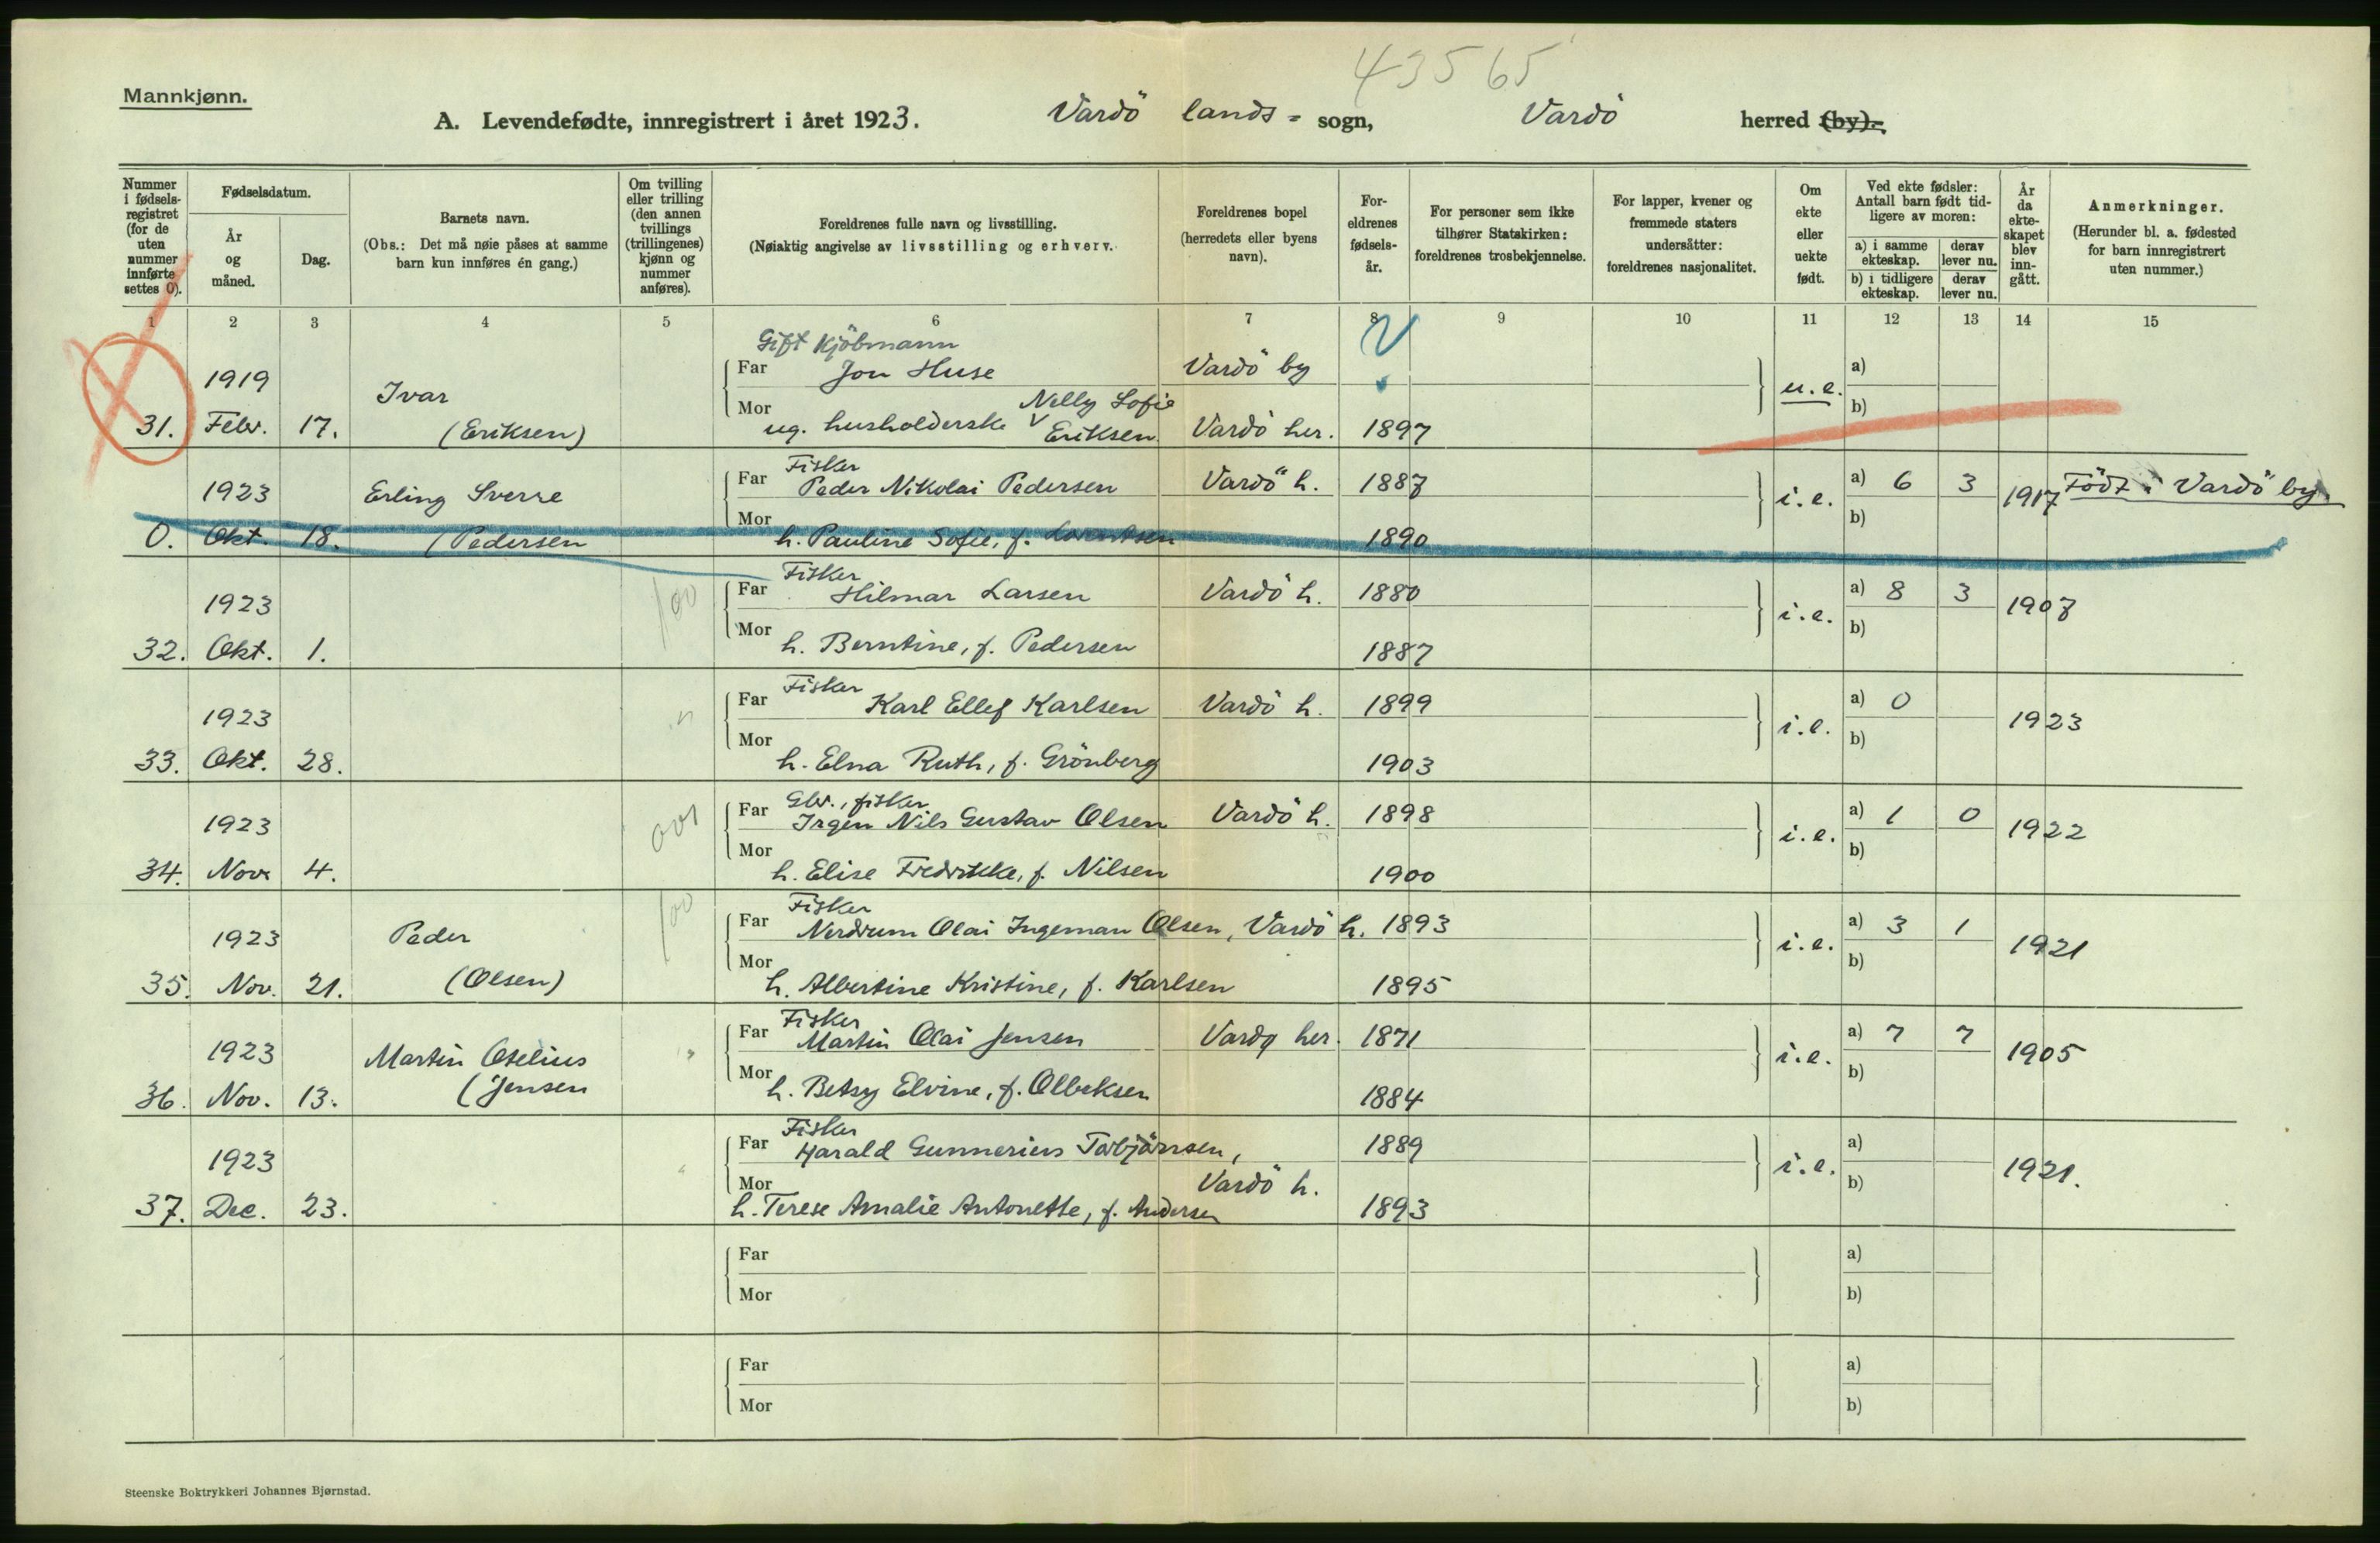 43565
Mannkjønn.
A. Levendefødte, innregistrert i året 1923. Vardö lands- sogn, Vardö herred (by).
Nummer i fødselsregistret (for de uten nummer innførte settes 0).
Fødselsdatum.
År og måned.
Dag.
Barnets navn.
(Obs.: Det må nøie påses at samme barn kun innføres én gang.)
Om tvilling eller trilling (den annen tvillings (trillingenes) kjønn og nummer anføres).
Foreldrenes fulle navn og livsstilling.
(Nøiaktig angivelse av livsstilling og erhverv.
Foreldrenes bopel (herredets eller byens navn).
Foreldrenes fødselsår.
For personer som ikke tilhører Statskirken: foreldrenes trosbekjennelse.
For lapper, kvener og fremmede staters undersåtter: foreldrenes nasjonalitet.
Om ekte eller uekte født.
Ved ekte fødsler: Antall barn født tidligere av moren:
a) i samme ekteskap. derav lever nu.
b) i tidligere ekteskap. derav lever nu.
År da ekteskapet blev inngått.
Anmerkninger.
(Herunder bl. a. fødested for barn innregistrert uten nummer.)
1 2 3 4 5 6 7 8 9 10 11 12 13 14 15
Gift Kjöbmann
1919 Ivar Far Jon Huse Vardö by u.e. a)
Mor Nelly Sofie b)
31. Febr. 17. (Eriksen) ug. husholderske Eriksen Vardö her. 1897
Fisker
1923 Erling Sverre Far Peder Nikolai Pedersen Vardö h. 1887 i.e. a) 6 3 1917 Födt i Vardö by.
Mor b)
0. Okt. 18. (Pedersen h. Pauline Sofie, f. Lorentsen 1890
Fisker
1923 Far Hilmar Larsen Vardö h. 1880 i.e. a) 8 3 1907
100
Mor b)
32. Okt. 1. h. Berntine, f. Pedersen 1887
Fisker
1923 Far Karl Ellef Karlsen Vardö h. 1899 i.e. a) 0 1923
Mor b)
33. Okt. 28. h. Elna Ruth, f. Grönberg 1903
Gbr., fisker
1923 Far Irgen Nils Gustav Olsen Vardö h. 1898 i.e. a) 1 0 1922
001
Mor b)
34. Nov. 4. h. Elise Fredrikke, f. Nilsen 1900
Fisker
1923 Peder Far Nerdrum Olai Ingeman Olsen, Vardö h. 1893 i.e. a) 3 1 1921
100
Mor b)
35. Nov. 21. (Olsen) h. Albertine Kristine, f. Karlsen 1895
Fisker
1923 Martin Otelius Far Martin Olai Jensen Vardø her. 1871 i.e. a) 7 7 1905
Mor b)
36. Nov. 13. (Jensen h. Betsy Elvine, f. Olbeksen 1884
Fisker
1923 Far Harald Gunnerius Torbjörnsen, 1889 i.e. a) 1921.
Mor Vardö h. b)
37. Dec. 23. h. Terese Amalie Antonette, f. Andersen 1893
Far a)
Mor b)
Far a)
Mor b)
Steenske Boktrykkeri Johannes Bjørnstad.